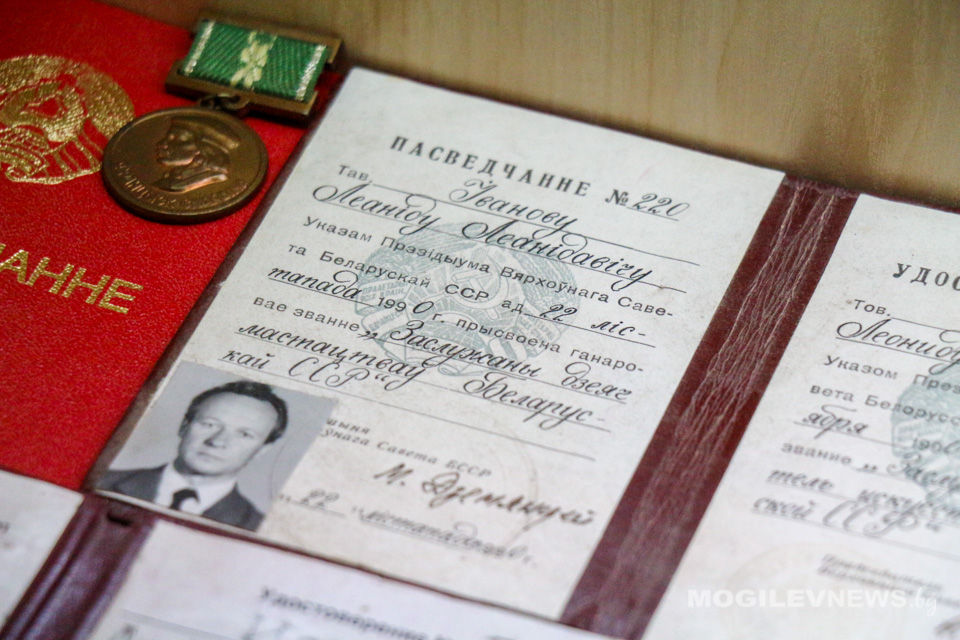 ПАСВЕДЧАННЕ № 220
Тав. Іванову
Леаніду Леанідавічу
Указам Прэзідыума Вярхоўнага Саве-
та Беларускай ССР ад 22 ліс-
тапада 1990 г. прысвоена ганаро-
вае званне „Заслужаны дзеяч
мастацтваў Беларус-
кай ССР“
ўнага Савета БССР
М. Дземянцей
„22“ лістапада
АННЕ
УДОС
Тов.
Леониду
Указом През
вета Белорусс
ября 199
звание „Засл
тель искус
ской ССР“
Удостоверение
MOGILEVNEWS.by